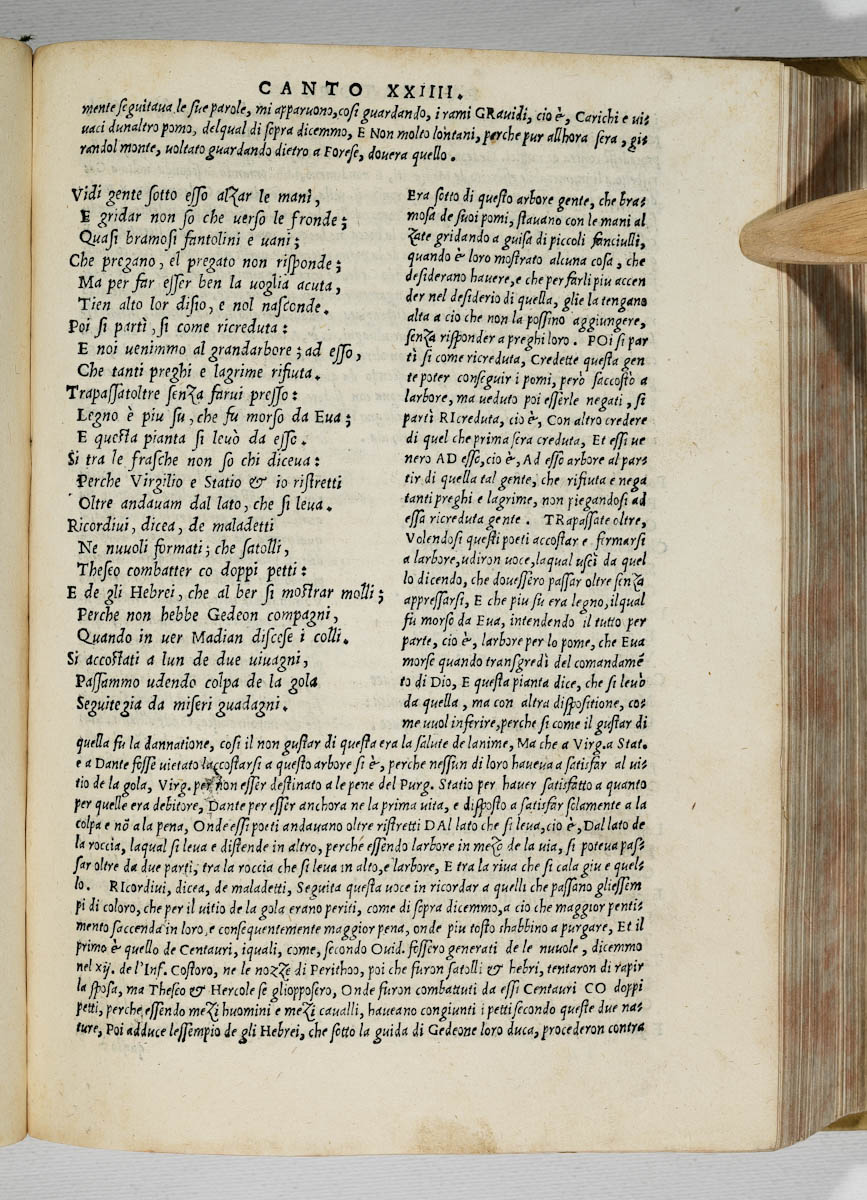 CANTO XXIIII.
mente seguitaua le sue parole, mi apparuono, cosi guardando, i rami GRauidi, cio è, Carichi e ui=
uaci dunaltro pomo, delqual di sopra dicemmo, E Non molto lontani, perche pur allhora sera, gi=
randol monte, uoltato guardando dietro a Forese, douera quello.
Vidi gente sotto esso alzar le mani,
E gridar non so che uerso le fronde;
Quasi bramosi fantolini e uani;
Che pregano, el pregato non risponde;
Ma per far esser ben la uoglia acuta,
Tien alto lor disio, e nol nasconde.
Poi si partì, si come ricreduta:
E noi uenimmo al grandarbore; ad esso,
Che tanti preghi e lagrime rifiuta.
Trapassatoltre senza farui presso:
Legno è piu su, che fu morso da Eua;
E questa pianta si leuò da esso.
Si tra le frasche non so chi diceua:
Perche Virgilio e Statio & io ristretti
Oltre andauam dal lato, che si leua.
Ricordiui, dicea, de maladetti
Ne nuuoli formati; che satolli,
Theseo combatter co doppi petti:
E de gli Hebrei, che al ber si mostrar molli;
Perche non hebbe Gedeon compagni,
Quando in uer Madian discese i colli.
Si accostati a lun de due uiuagni,
Passammo udendo colpa de la gola
Seguitegia da miseri guadagni.
Era sotto di questo arbore gente, che bra=
mosa de suoi pomi, stauano con le mani al
zate gridando a guisa di piccoli fanciulli,
quando è loro mostrato alcuna cosa, che
desiderano hauere, e che per farli piu accen
der nel desiderio di quella, glie la tengano
alta a cio che non la possino aggiungere,
senza risponder a preghi loro. POi si par
tì si come ricreduta, Credette questa gen
te poter conseguir i pomi, però saccostò a
larbore, ma ueduto poi esserle negati, si
partì RIcreduta, cio è, Con altro credere
di quel che prima sera creduta, Et essi ue
nero AD esso, cio è, Ad esso arbore al par=
tir di quella tal gente, che rifiuta e nega
tanti preghi e lagrime, non piegandosi ad
essa ricreduta gente. TRapassate oltre,
Volendosi questi poeti accostar e fermarsi
a larbore, udiron uoce, laqual uscì da quel
lo dicendo, che douessero passar oltre senza
appressarsi, E che piu su era legno, ilqual
fu morso da Eua, intendendo il tutto per
parte, cio è, larbore per lo pome, che Eua
morse quando transgredì del comandamē
to di Dio, E questa pianta dice, che si leuò
da quella, ma con altra dispositione, co=
me uuol inferire, perche si come il gustar di
quella fu la dannatione, cosi il non gustar di questa era la salute de lanime, Ma che a Virg. a Stat.
e a Dante fosse uietato laccostarsi a questo arbore si è, perche nessun di loro haueua a satisfar al ui=
tio de la gola, Virg. per non esser destinato a le pene del Purg. Statio per hauer satisfatto a quanto
per quelle era debitore, Dante per esser anchora ne la prima uita, e disposto a satisfar solamente a la
colpa e nō a la pena, Onde essi poeti andauano oltre ristretti DAl lato che si leua, cio è, Dal lato de
la roccia, laqual si leua e distende in altro, perche essendo larbore in mezo de la uia, si poteua pas=
sar oltre da due parti, tra la roccia che si leua in alto, e larbore, E tra la riua che si cala giu e quel=
lo. RIcordiui, dicea, de maladetti, Seguita questa uoce in ricordar a quelli che passano gliessem
pi di coloro, che per il uitio de la gola erano periti, come di sopra dicemmo, a cio che maggior penti=
mento saccenda in loro, e consequentemente maggior pena, onde piu tosto shabbino a purgare, Et il
primo è quello de Centauri, iquali, come, secondo Ouid. fossero generati de le nuuole, dicemmo
nel xij. de l'Inf. Costoro, ne le nozze di Perithoo, poi che furon satolli & hebri, tentaron di rapir
la sposa, ma Theseo & Hercole se gliopposero, Onde furon combattuti da essi Centauri CO doppi
petti, perche essendo mezi huomini e mezi caualli, haueano congiunti i petti secondo queste due na=
ture, Poi adduce lessempio de gli Hebrei, che sotto la guida di Gedeone loro duca, procederon contra